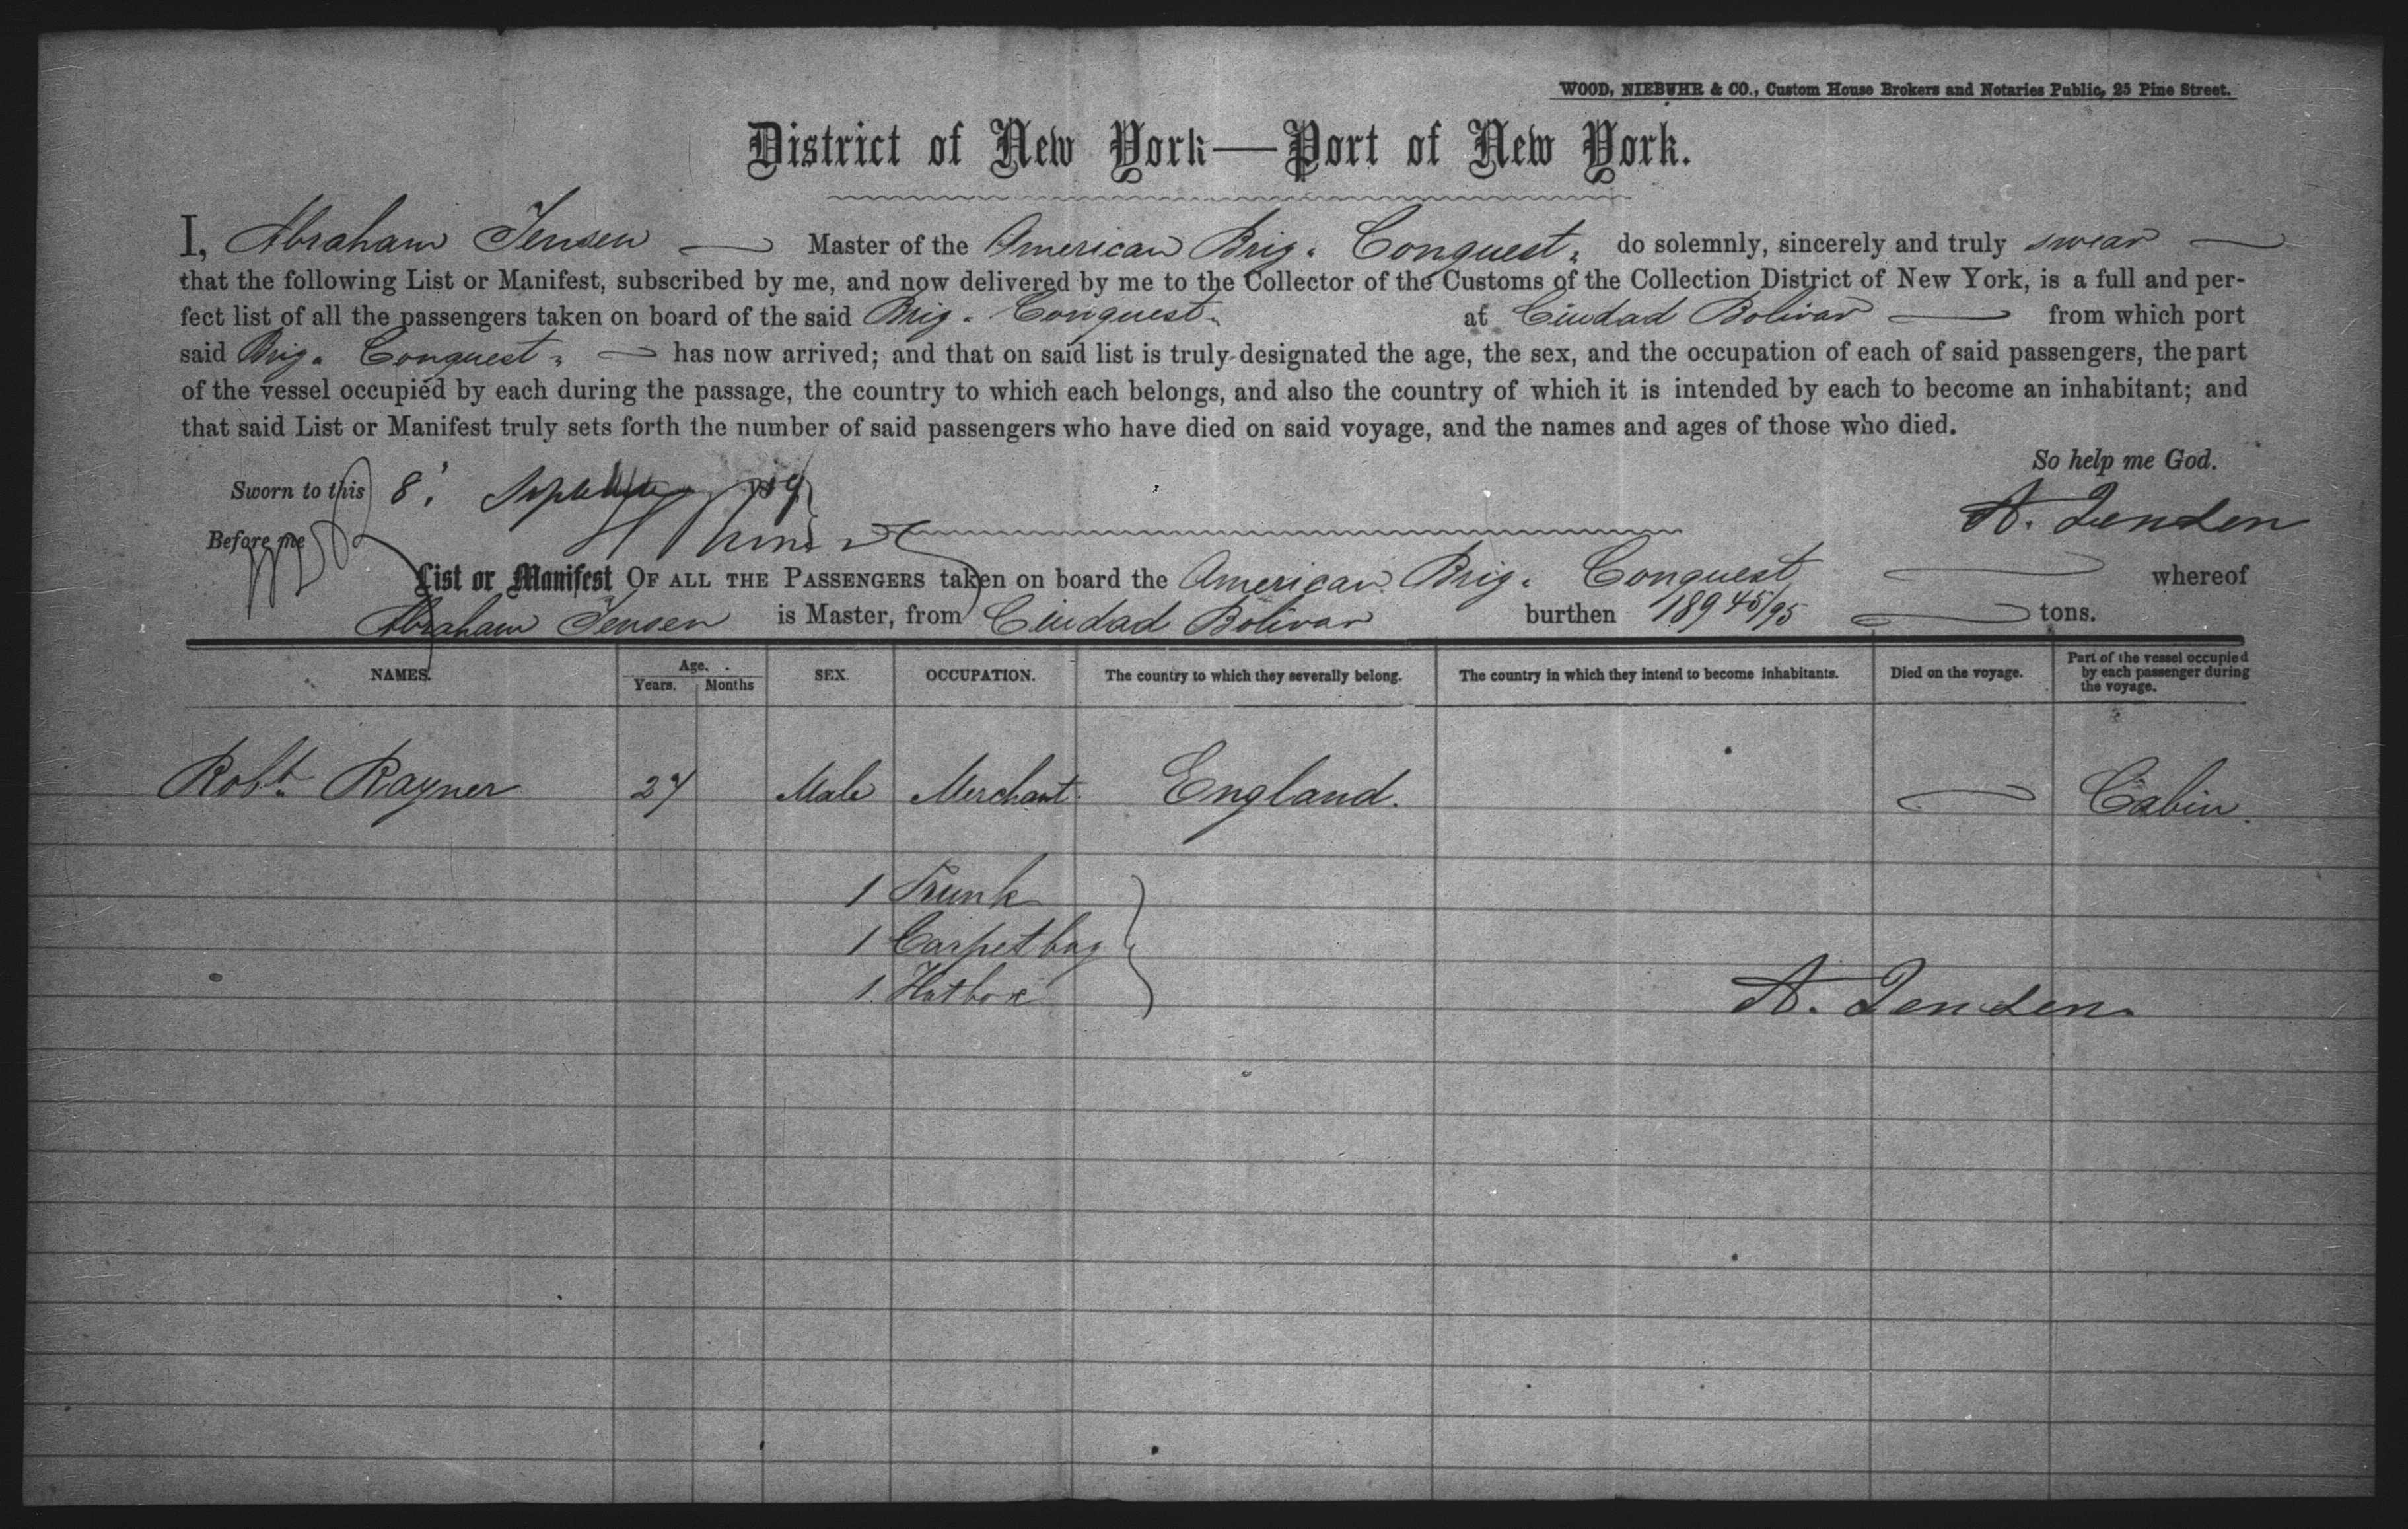 WOOD, NIEBUHR & CO., Custom House Brokers and Notaries Public, 25 Pine Street.
District of New York—Port of New York.
I, Abraham Jensen Master of the American Brig. Conquest. do solemnly, sincerely and truly swear
that the following List or Manifest, subscribed by me, and now delivered by me to the Collector of the Customs of the Collection District of New York, is a full and per-
fect list of all the passengers taken on board of the said Brig. Conquest. at Ciudad Bolivar from which port
said Brig. Conquest. has now arrived; and that on said list is truly designated the age, the sex, and the occupation of each of said passengers, the part
of the vessel occupied by each during the passage, the country to which each belongs, and also the country of which it is intended by each to become an inhabitant; and
that said List or Manifest truly sets forth the number of said passengers who have died on said voyage, and the names and ages of those who died.
So help me God.
Sworn to this 8
A. Jensen
Before me
List or Manifest OF ALL THE PASSENGERS taken on board the American Brig. Conquest whereof
Abraham Jensen is Master, from Ciudad Bolivar burthen 189 45/95 tons.
NAMES. Age. Years. Months SEX. OCCUPATION. The country to which they severally belong. The country in which they intend to become inhabitants. Died on the voyage. Part of the vessel occupied by each passenger during the voyage.
Robt. Rayner 27 Male Merchant England. Cabin.
1 Trunk
1 Carpetbag
1 Hatbox
A. Jensen.